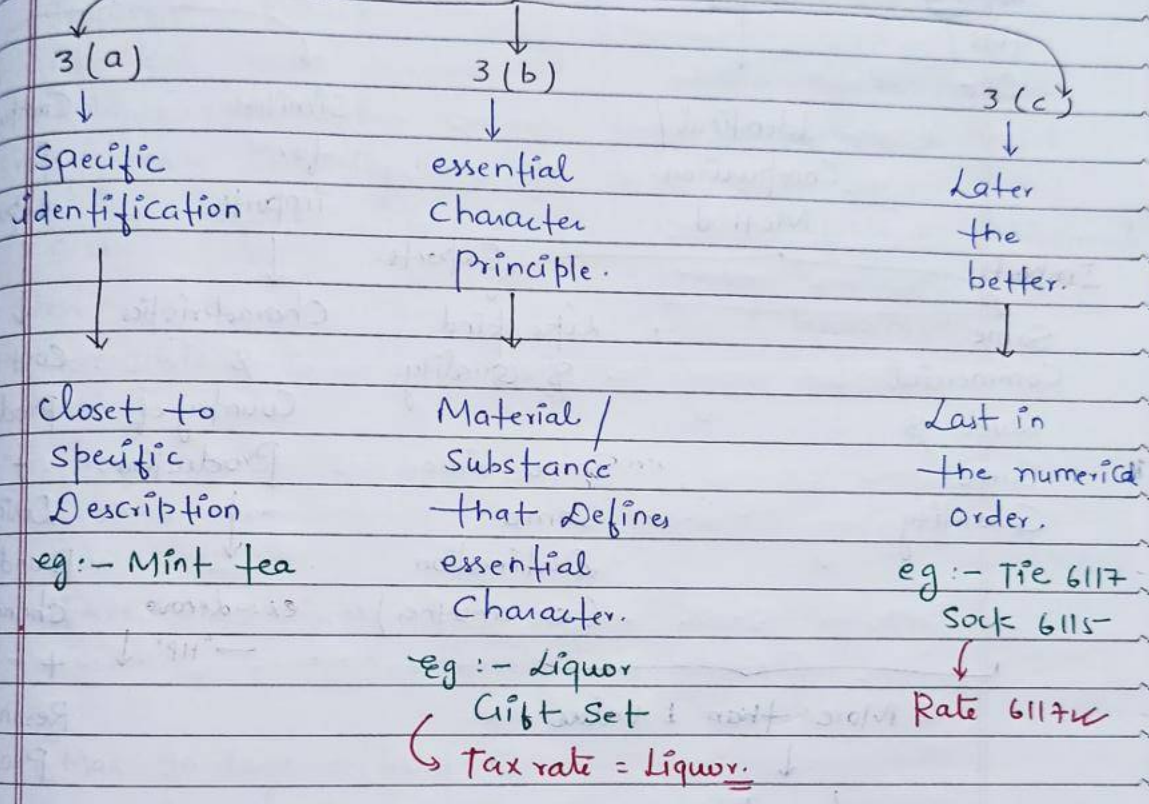 3(a)
↓
Specific
identification
↓
Closet to
specific
Description
eg:- Mint tea
3(b)
↓
essential
Character
Principle.
↓
Material /
Substance
that Defines
essential
Character.
eg :- Liquor
Gift Set
Tax rate = Liquor.
3(c)
↓
Later
the
better.
↓
Last in
the numerical
order.
eg :- Tie 6117
Sock 6115
↓
Rate 6117